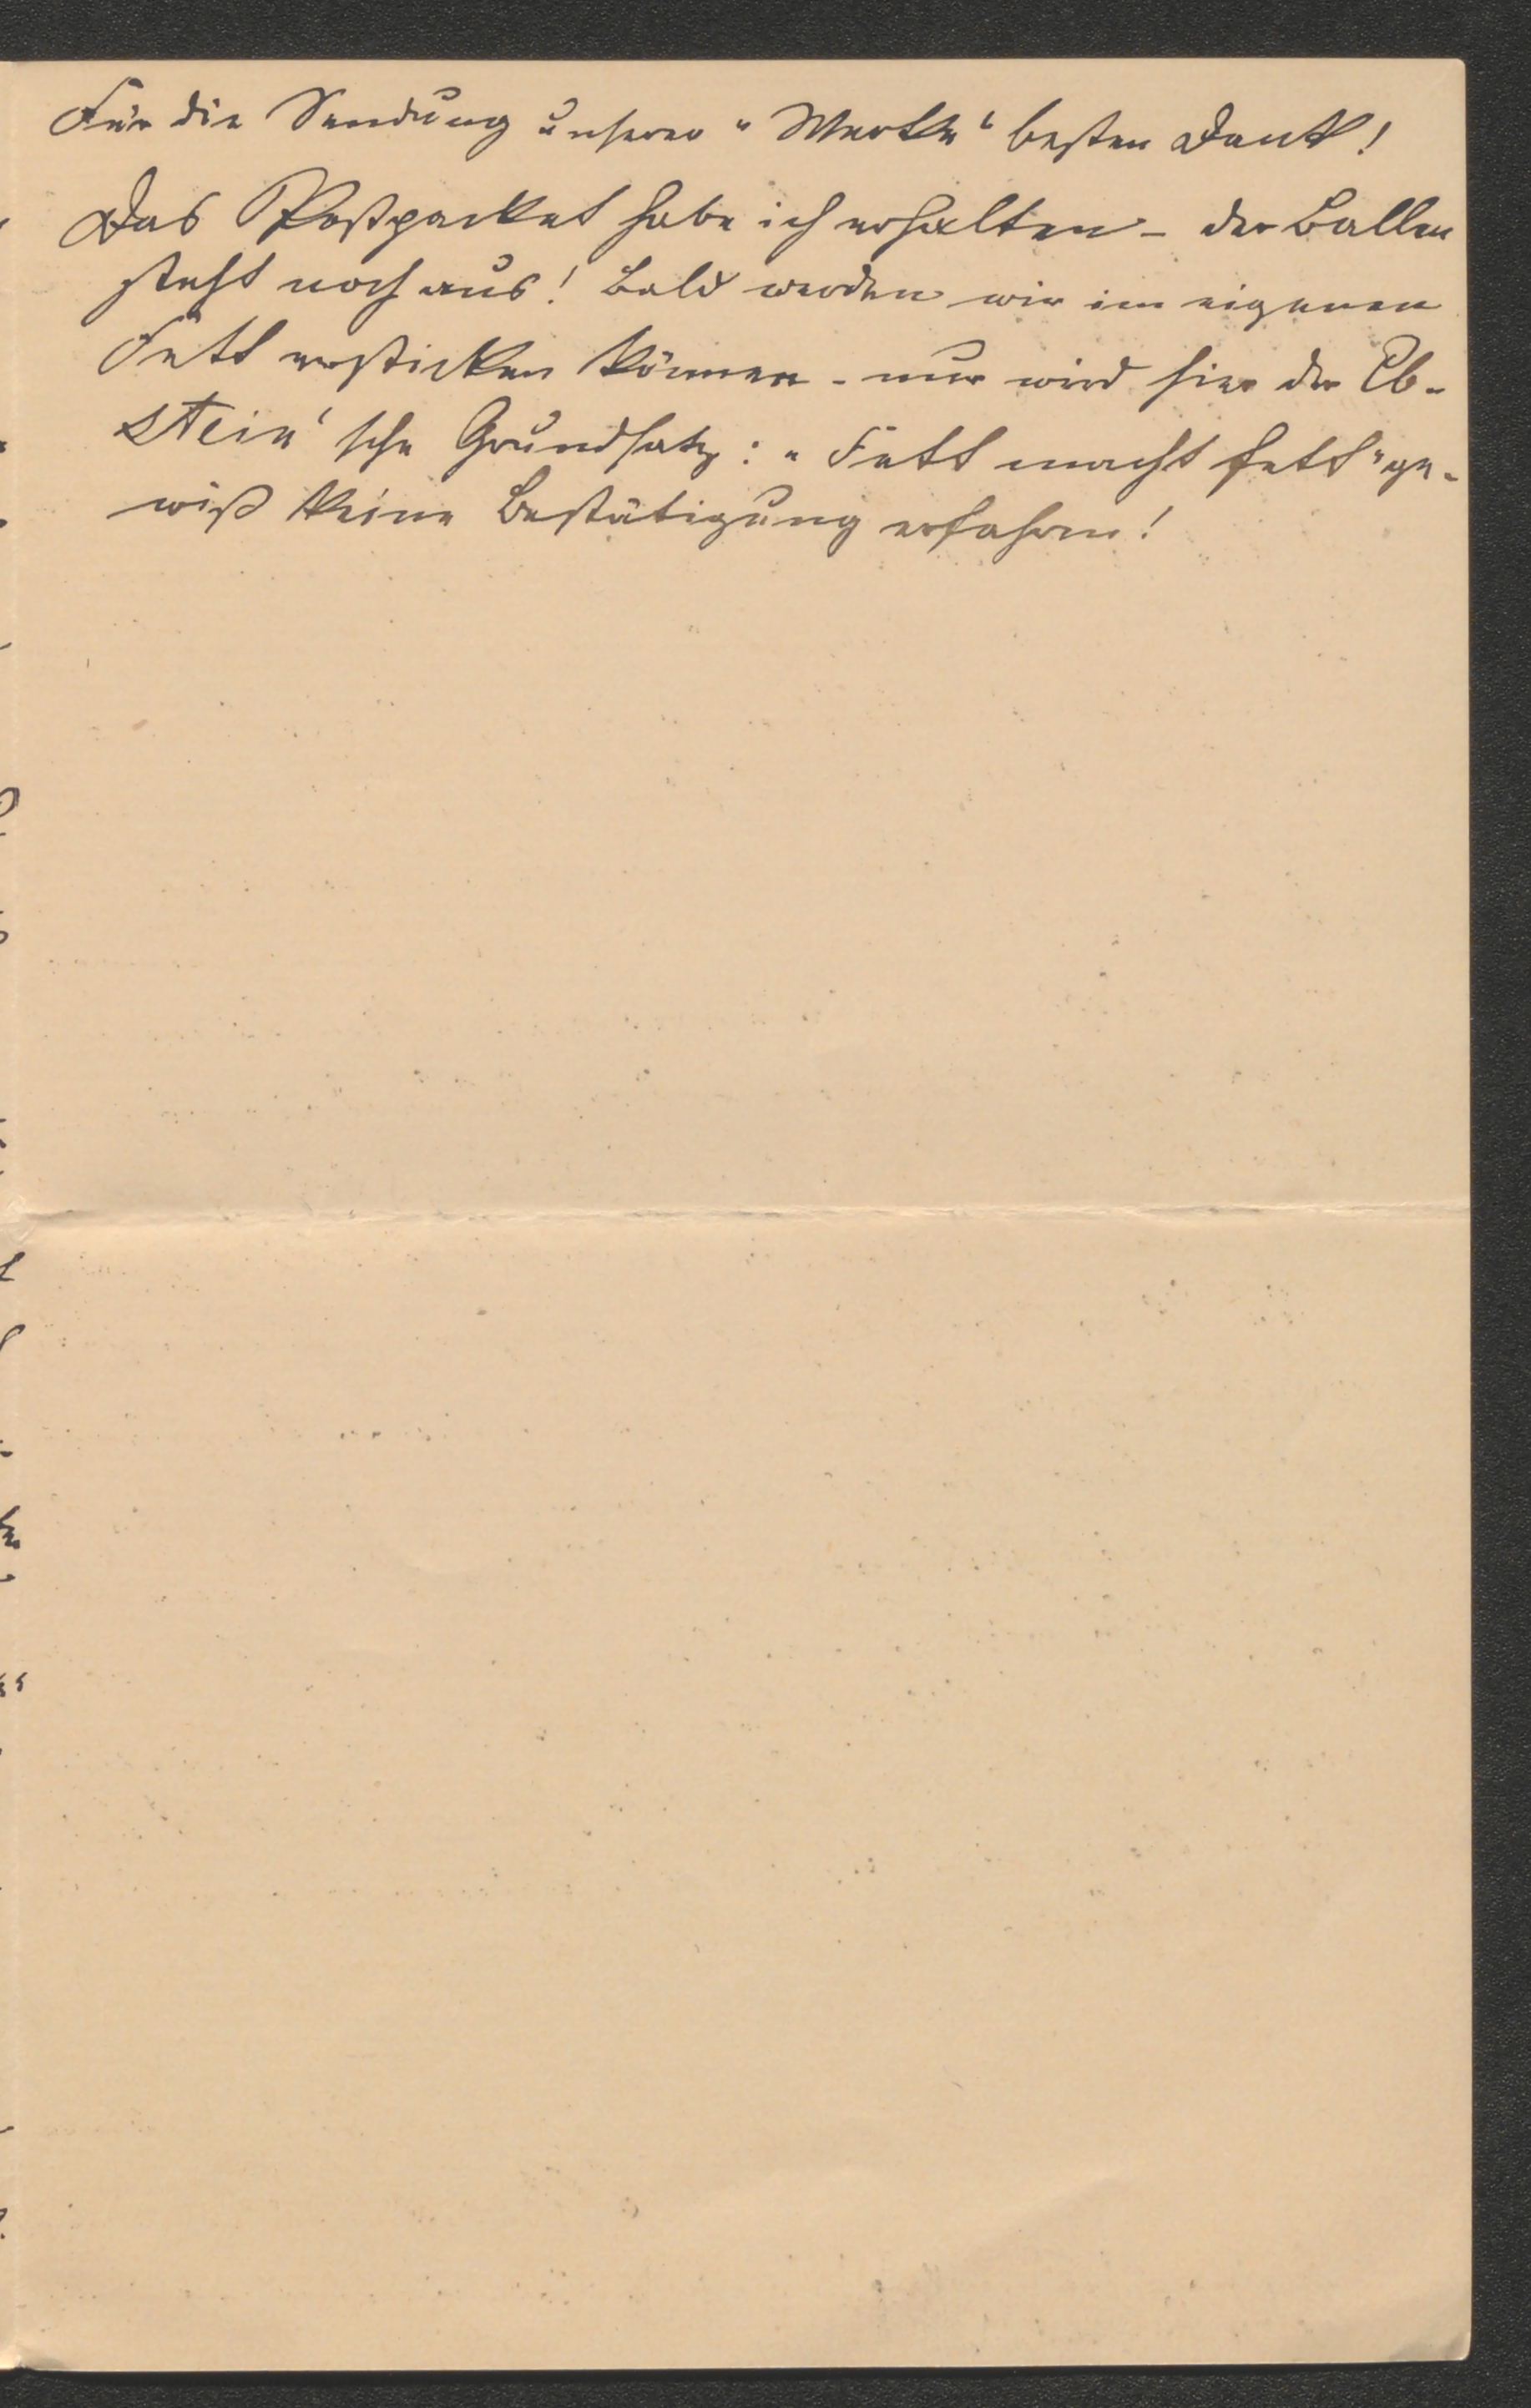 Für die Sendung unserer „Werke“ besten Dank!
Das Postpacket habe ich erhalten – der Ballen
steht noch aus! Bald werden wir im eigenen
Fett ersticken können – nur wird hier der Eb-
stein'sche Grundsatz: „Fett macht fett“ ge-
wiß keine Bestätigung erfahren!